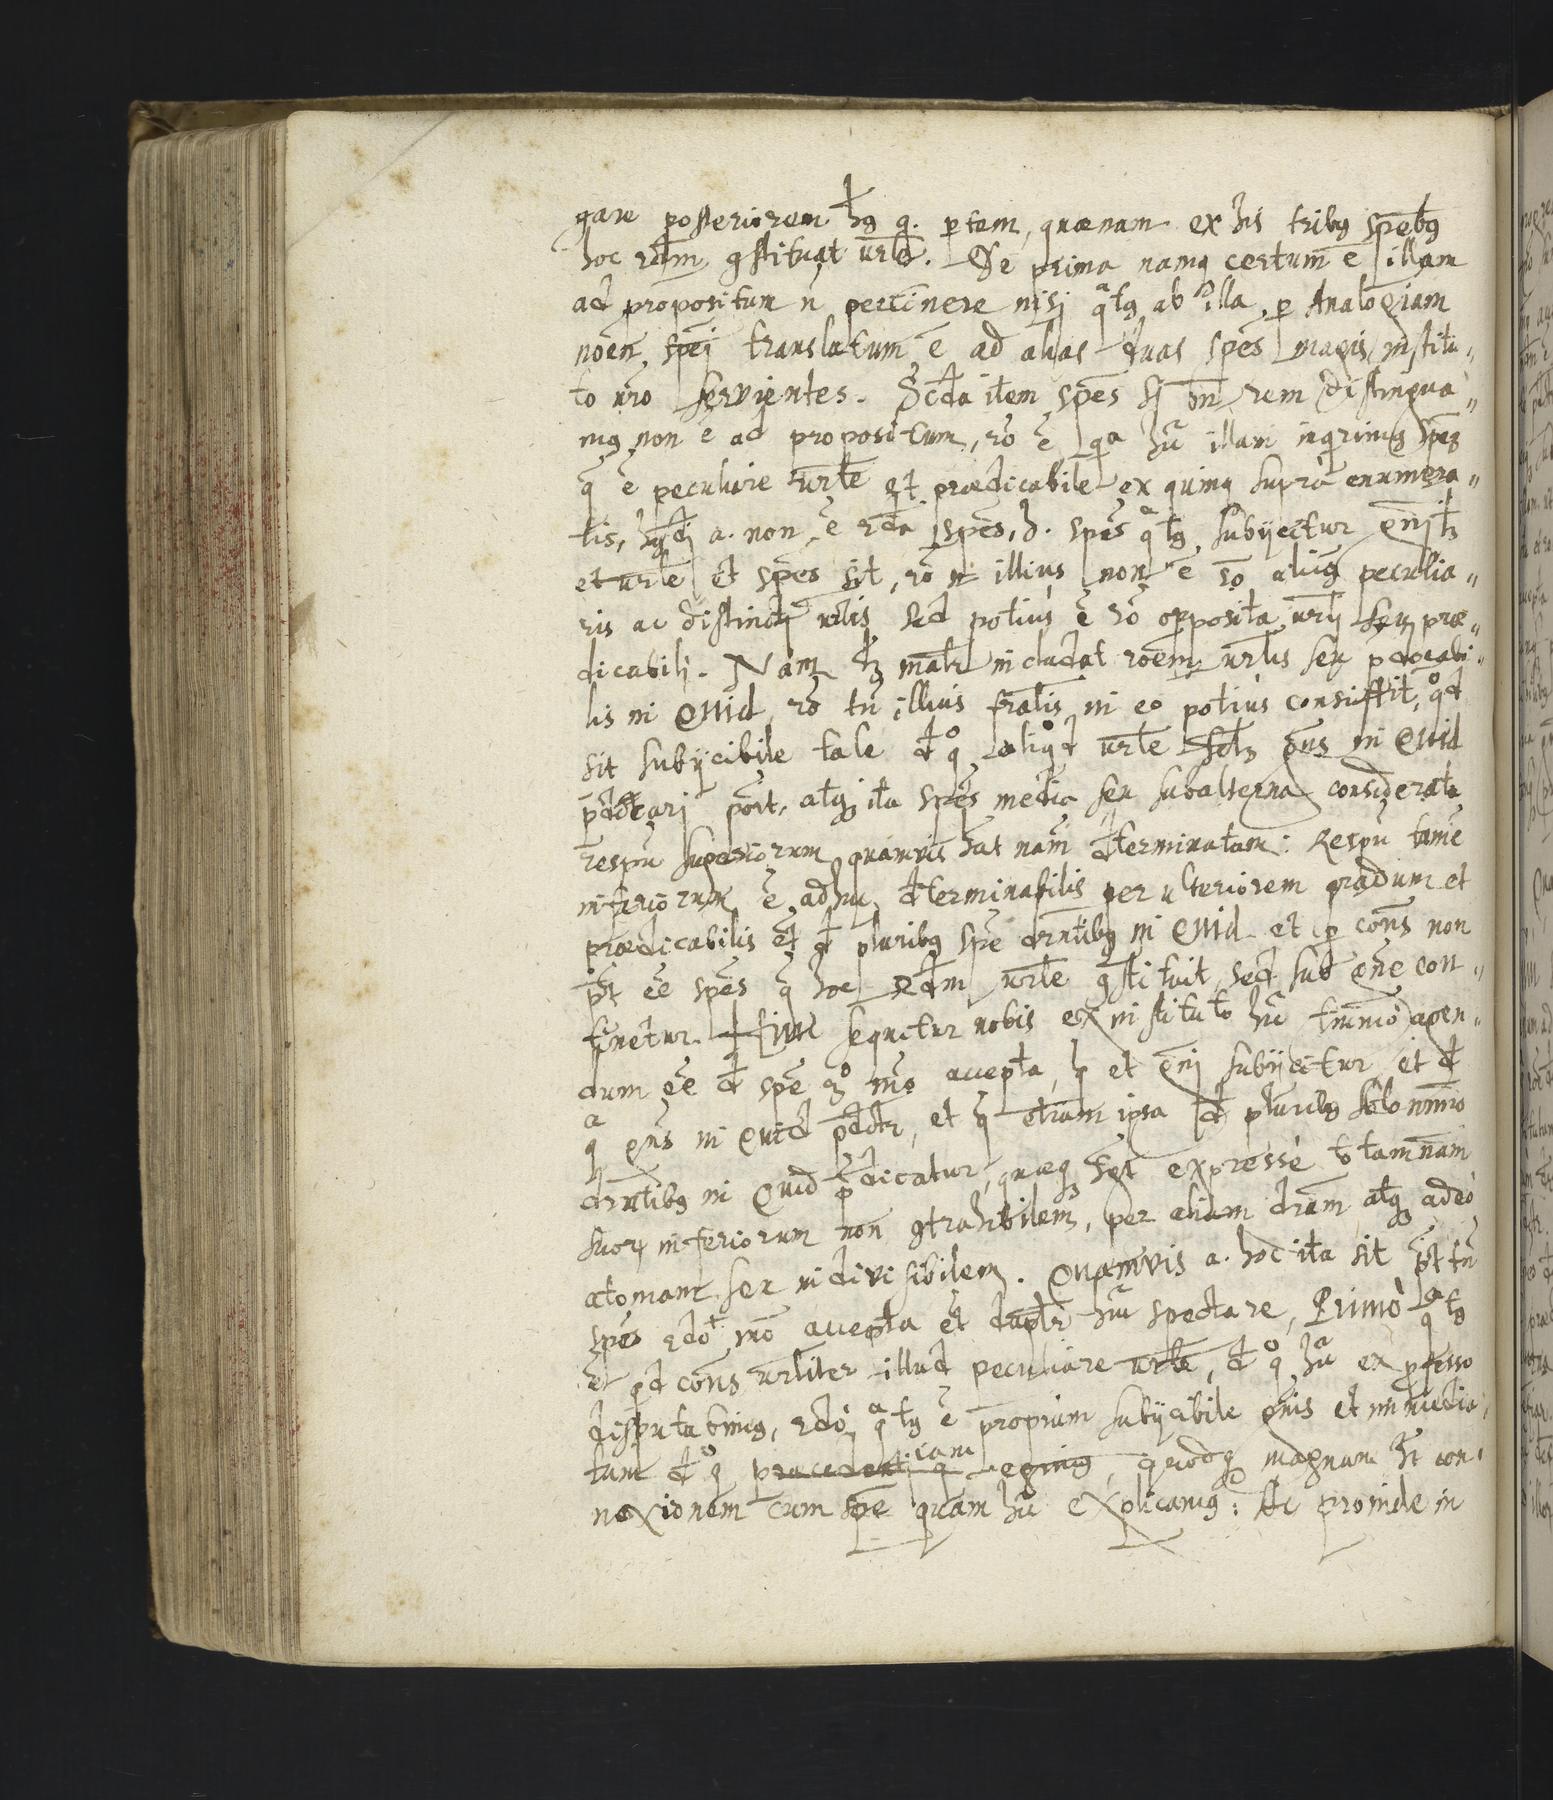 gare posteriorem hȝ q. ptem, quænam ex his tribȝ spēbȝ
hoc 2dm gstituat urle. De prima namq certum ē illam
ad propositum n̄ pertinere nisi qtȝ ab illa p Analogiam
noen spei translatum ē ad alias duas spēs magis institu„
to nro servientes. Scda item spēs si bn rem distingua„
mȝ non ē ad propositum, rō ē qa hīc illam inqrimȝ spem
q̄ ē peculiare urle et prædicabile ex quinq supra enumera„
tis, a. non ē 2da spēs, spēs qtȝ subijcitur gn̄i
et urle et spēs sit, rō n. illius non ē rō alicȝ peculia„
ris ac distincti urlis sed potius ē rō opposita urli seu præ„
dicabili. Nam includat roem urlis seu pdicabi„
lis in Quid, rō tn illius fralis in eo potius consistit, qd
sit subijcibile tale d qo aliqd urle gn̄s in Quid
pdicari poīt, atq ita spēs media seu subalterna considerata
respu superiorum quamvis hat nam determinatam: Respu tamē
inferiorum ē adhuc determinabilis per ulteriorem gradum et
prædicabilis ēt d pluribȝ spē drntibȝ in Quid et p cons non
pt ēē spēs q̄ hoc 2dm urle gstituit, sed sub gn̄e con„
tinetur. Hinc sequitur nobis ex instituto hīc tmmō agen„
dum ēē d spē 3o mō accepta, q̄ et gn̄i subijcitur et d
qa gn̄s in Quid pdctr, et q̄ etiam ipsa d pluribȝ solo nmrō
drntibȝ in Quid pdicatur, quæq expresse totam nam
suorȝ inferiorum non gtrahibilem, per aliam dram atq adeo
atomam seu indivisibilem. Quamvis a. hoc ita sit pt tn
spēs 2dō mō accepta ēt duplr hīc spectare, Primo qtȝ
ēt qd cons urliter illud peculiare urle, d qo hīc ex professo
disputabimȝ, 2dō qtȝ ē proprium subijcibile gn̄is et immedia„
tum d qo egimȝ, quodq magnam ht con„
nexionem cum spē quam hīc explicamȝ: Ac proinde in